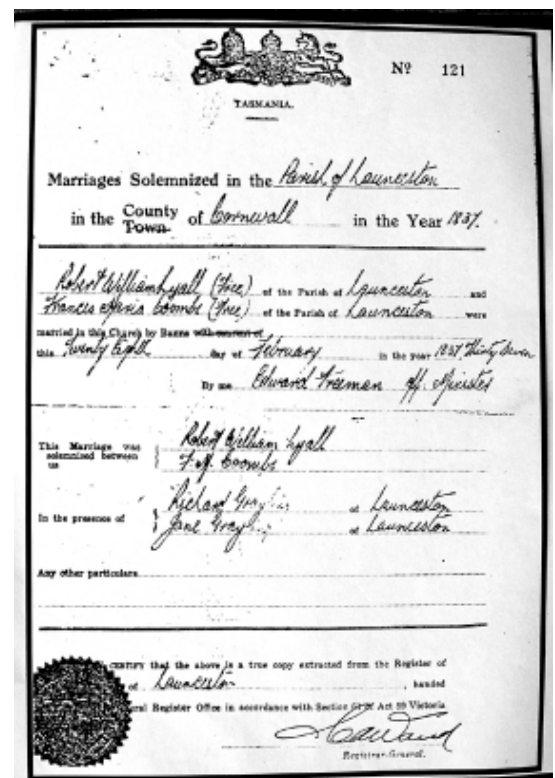 Nº 121
TASMANIA.
Marriages Solemnized in the Parish of Launceston
in the County Town of Cornwall in the Year 1837.
Robert William Lyall (Free) of the Parish of Launceston and
Francis Maria Coombs (Free) of the Parish of Launceston were
married in this Church by Banns with consent of
this Twenty Eighth day of February in the year 1837 Thirty Seven
By me Edward Freeman Off. Minister
This Marriage was solemnised between us
Robert William Lyall
F. M. Coombs
In the presence of
Richard of Launceston
Jane of Launceston
Any other particulars
CERTIFY that the above is a true copy extracted from the Register of
of Launceston, handed
Register Office in accordance with Section of Act 59 Victoria
Registrar-General.